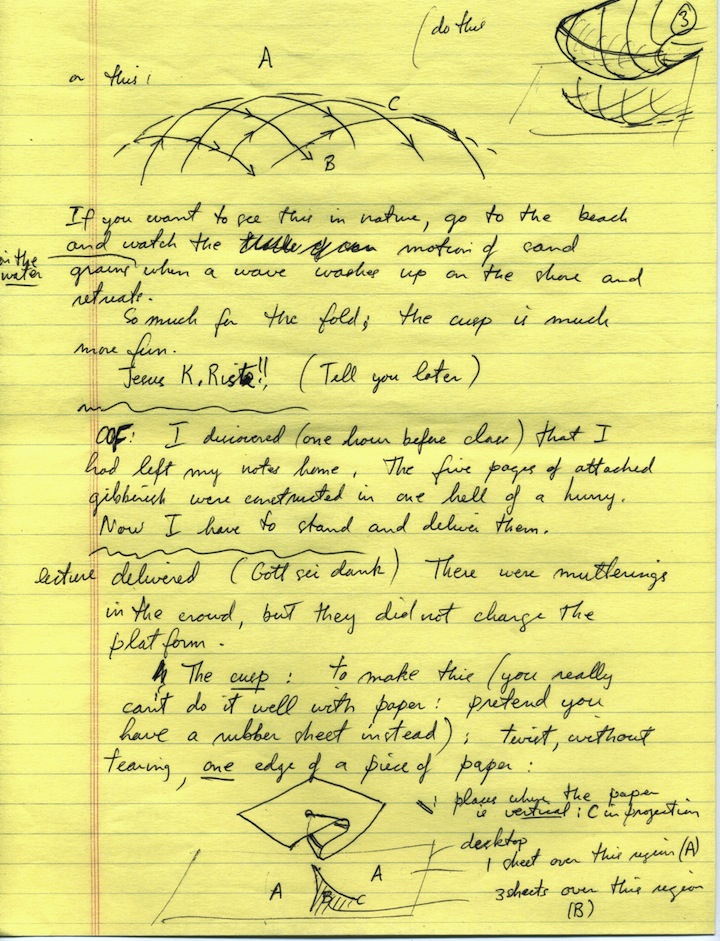 (do this
3
or this:
A
C
B
If you want to see this in nature, go to the beach
and watch the motion of sand
in the
water
grains when a wave washes up on the shore and
retreats.
So much for the fold; the cusp is much
more fun.
Jesus K. Rist!! (Tell you later)
OOF: I discovered (one hour before class) that I
had left my notes home. The five pages of attached
gibberish were constructed in one hell of a hurry.
Now I have to stand and deliver them.
lecture delivered (Gott sei dank) There were mutterings
in the crowd, but they did not charge the
platform.
The cusp: to make this (you really
can't do it well with paper: pretend you
have a rubber sheet instead); twist, without
tearing, one edge of a piece of paper:
: places where the paper
is vertical: C in projection
desktop
1 sheet over this region (A)
3 sheets over this region
(B)
A
B
C
A